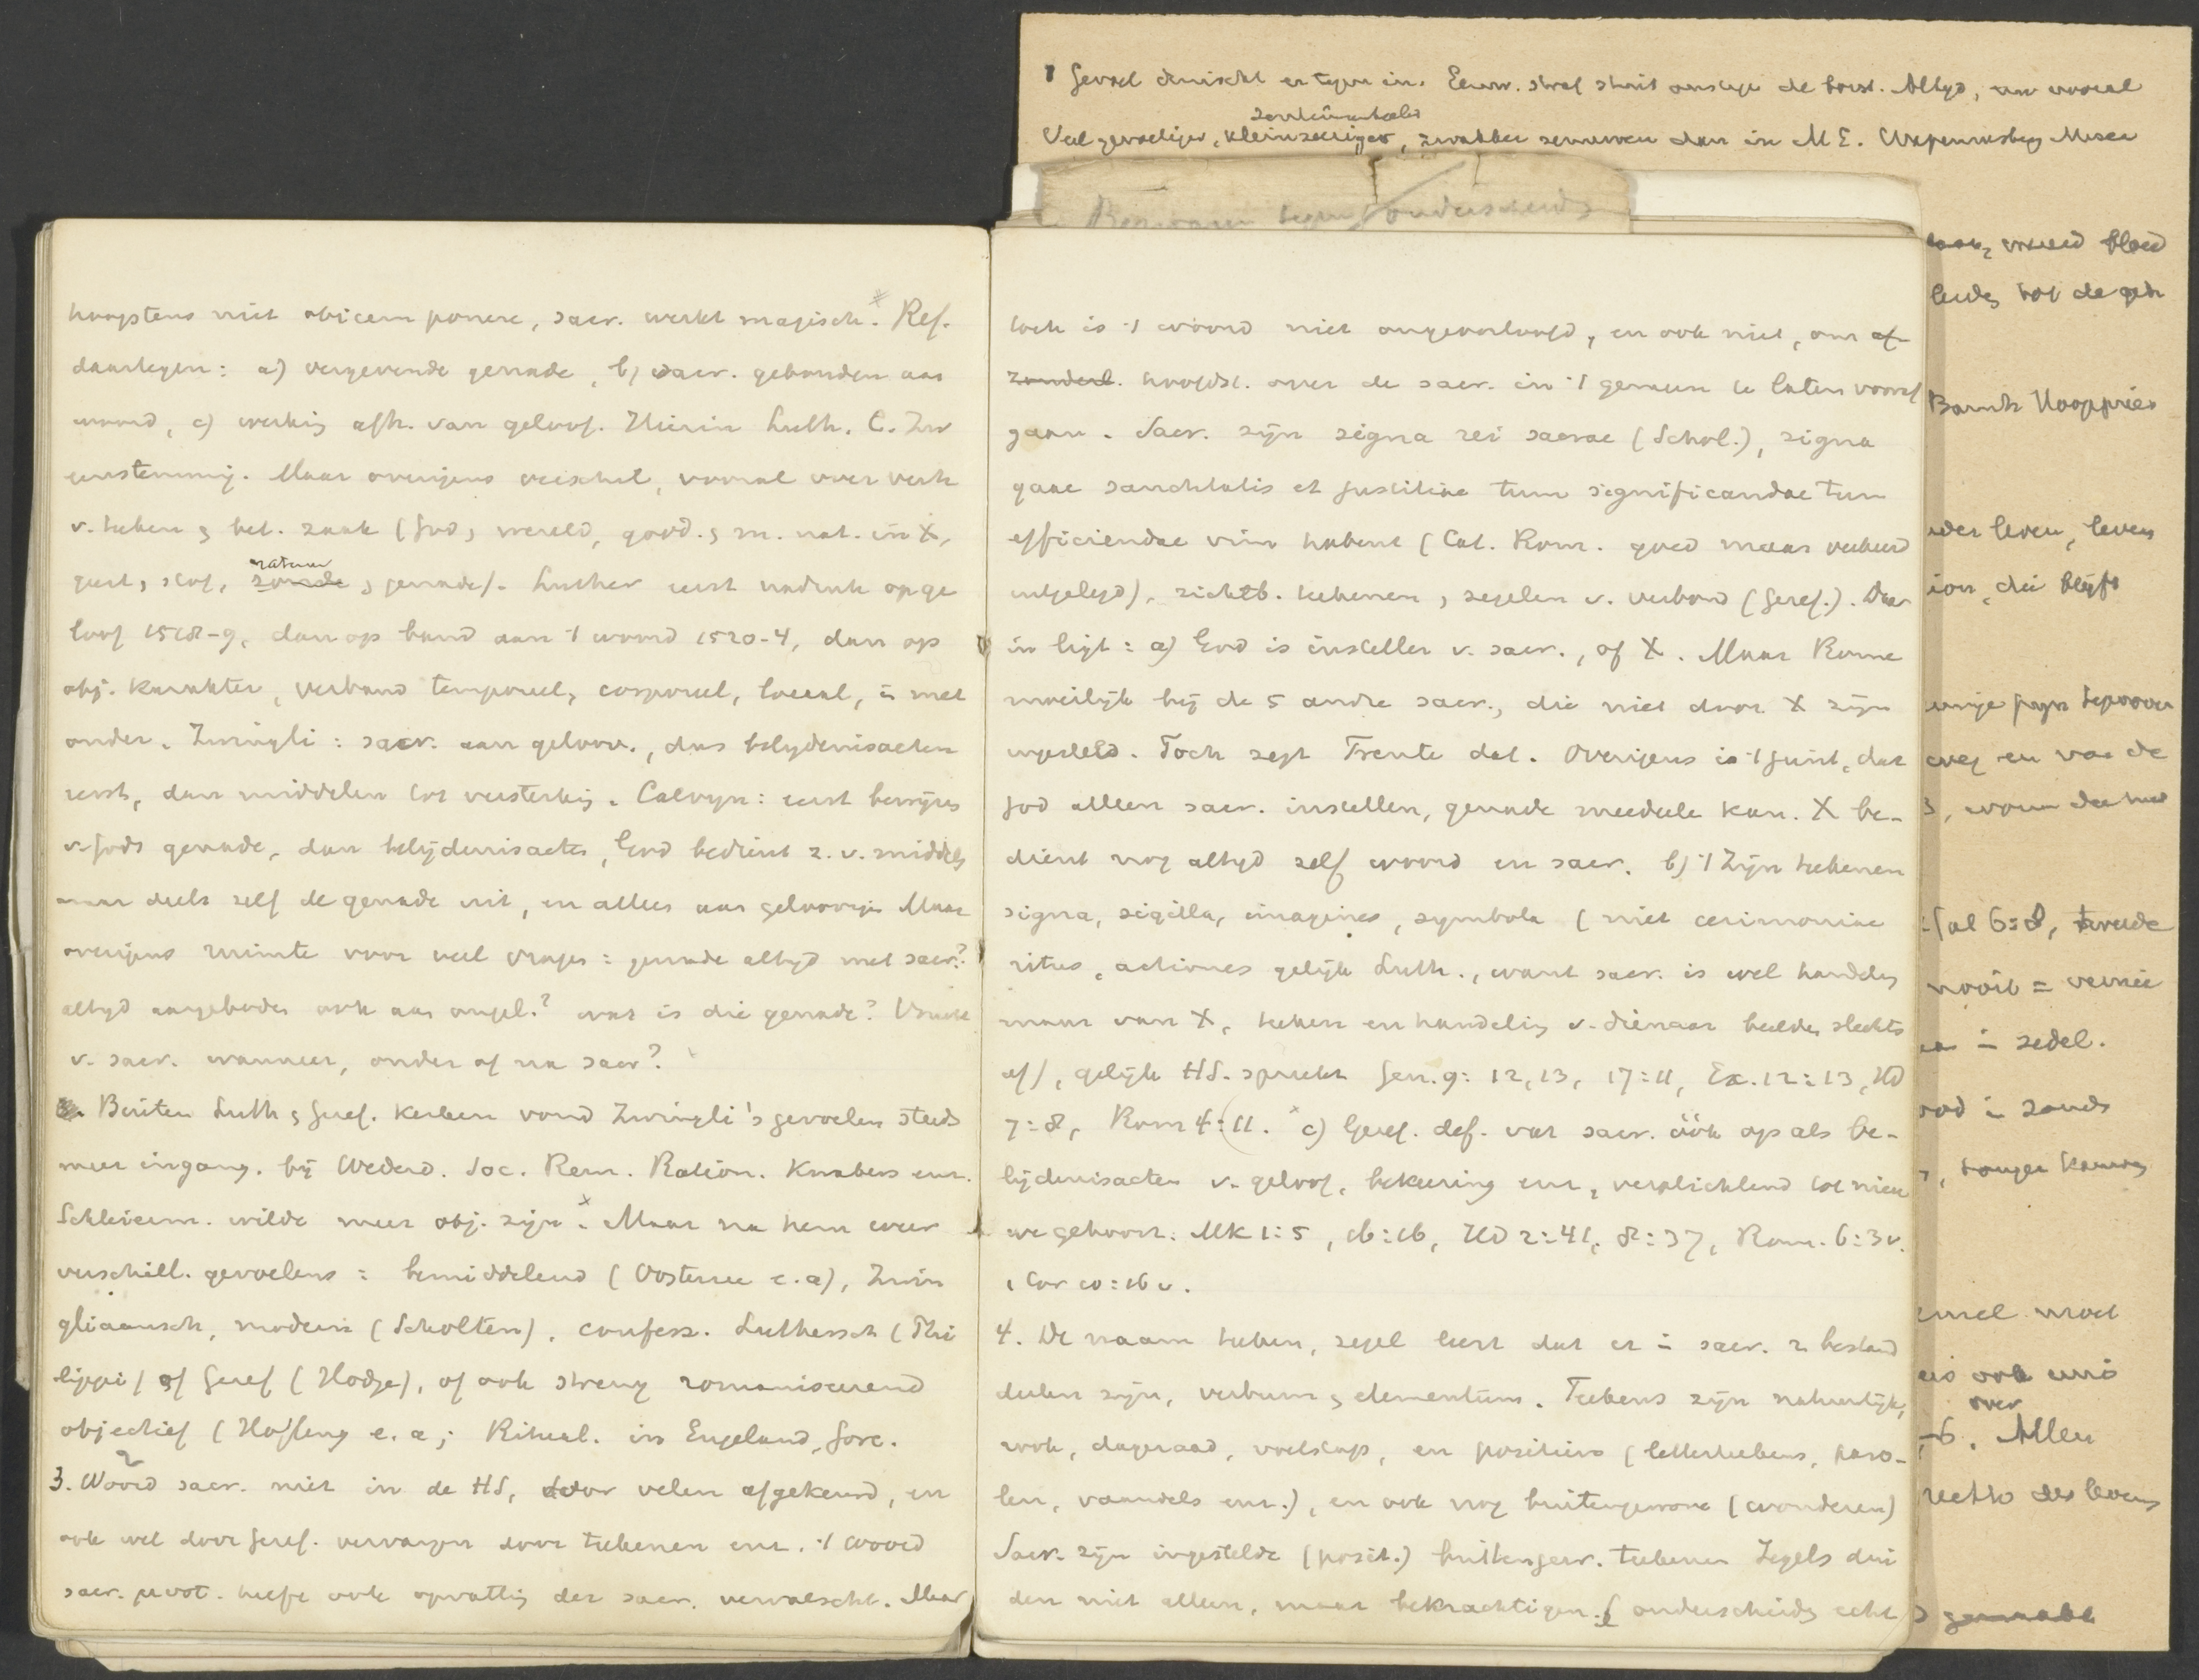 hoogstens niet obicem ponere, sacr. werkt magisch. Ref.
daartegen: a) vergevende genade, b) sacr. gebonden aan
woord, c) werking afh. van geloof. Hierin Luth. C. Zw
eenstemmig. Maar overigens verschil, vooral over verh
v. teeken & bet. zaak (God & wereld, godd. & m. nat. in X,
geest & stof, natuur & genade). Luther eerst nadruk op ge
loof 1518-9, dan op band aan 't woord 1520-4, dan op
obj. karakter, verband temporeel, corporeel, locaal, in met
onder. Zwingli: sacr. aan geloov., dus belijdenisacten
eerst, dan middelen tot versterking. Calvyn: eerst bewijzen
v. Gods genade, dan belijdenisacten, God bedient z. v. middels
maar deelt zelf de genade uit, en alleen aan geloovigen Maar
overigens ruimte voor veel vragen: genade altyd met sacr.?
altyd aangeboden ook aan ongel.? wat is die genade? Vrucht
v. sacr. wanneer, onder of na sacr?
Buiten Luth & Geref. kerken vond Zwingli's gevoelen steeds
meer ingang. bij Wederd. Soc. Rem. Ration. Knabers enz.
Schleierm. wilde meer obj. zijn. Maar na hem weer
verschill. gevoelens: bemiddelend (Oosterzee e.a), Zwin
gliaansch, modern (Scholten), confess. Luthersch (Phi
lippi) of Geref (Hodge), of ook streng romaniseerend
objectief (Höfling e.a; Ritual. in Engeland, Gore.
3. Woord sacr. niet in de HS, door velen afgekeurd, en
ook wel door Geref. vervangen door teekenen enz. 't woord
sacr. prot. heeft ook opvatting der sacr. vervalscht. Maar
toch is 't woord niet ongeoorloofd, en ook niet, om af
zonderl. hoofdst. over de sacr. in 't gemeen te laten vooraf
gaan. Sacr. zijn signa rei sacrae (Schol.), signa
quae sanctitatis et justitiae tum significandae tum
efficiendae vim habent (Cat. Rom. goed maar verkeerd
uitgelegd), zichtb. teekenen & zegelen v. verbond (Geref.). Daar
in ligt: a) God is insteller v. sacr., of X. Maar Rome
moeilijk bij de 5 andre sacr., die niet door X zijn
ingesteld. Toch zegt Trente dat. Overigens is 't juist, dat
God alleen sacr. instellen, genade meedeele kan. X be-
dient nog altyd zelf woord en sacr. b) 't Zijn teekenen
signa, sigilla, imagines, symbola (niet cerimoniae
ritus, actiones gelijk Luth., want sacr. is wel handeling
maar van X, teeken en handeling v. dienaar beelden slechts
af), gelijk HS. spreekt Gen. 9: 12, 13, 17:11, Ex. 12:13, HD
7:8, Rom 4:11. c) Geref. def. vat sacr. óók op als be-
lijdenisacten v. geloof, bekeering enz, verplichtend tot nieu
we gehoorz. Mk 1:5, 16:16, HD 2:41, 8:37, Rom. 6:3v.
1 Cor 10:16v.
4. De naam teeken, zegel leert dat er in sacr. 2 bestand
deelen zijn, verbum & elementum. Teekens zijn natuurlijk,
rook, dageraad, voetstap, en positieve (letterteekens, paro-
len, vaandels enz.), en ook nog buitengewone (wonderen)
Sacr. zijn ingestelde (posit.) buitengew. teekenen Zegels dui
den niet alleen, maar bekrachtigen & onderscheiden echt
Gevoel druischt er tegen in. Eeuw. straf stuit ons tegen de borst. Altyd, nu vooral
sentimenteeler
Veel gevoeliger, kleinzeeriger, zwakker zenuwen dan in ME.
Bezwaren tegen onderscheid
vreed bloed
uder leven, levens
die blijft
Gal 6:8, tweede
nooit =
in zedel.
in zonde
moet
ook eens
over
Allen
des levens